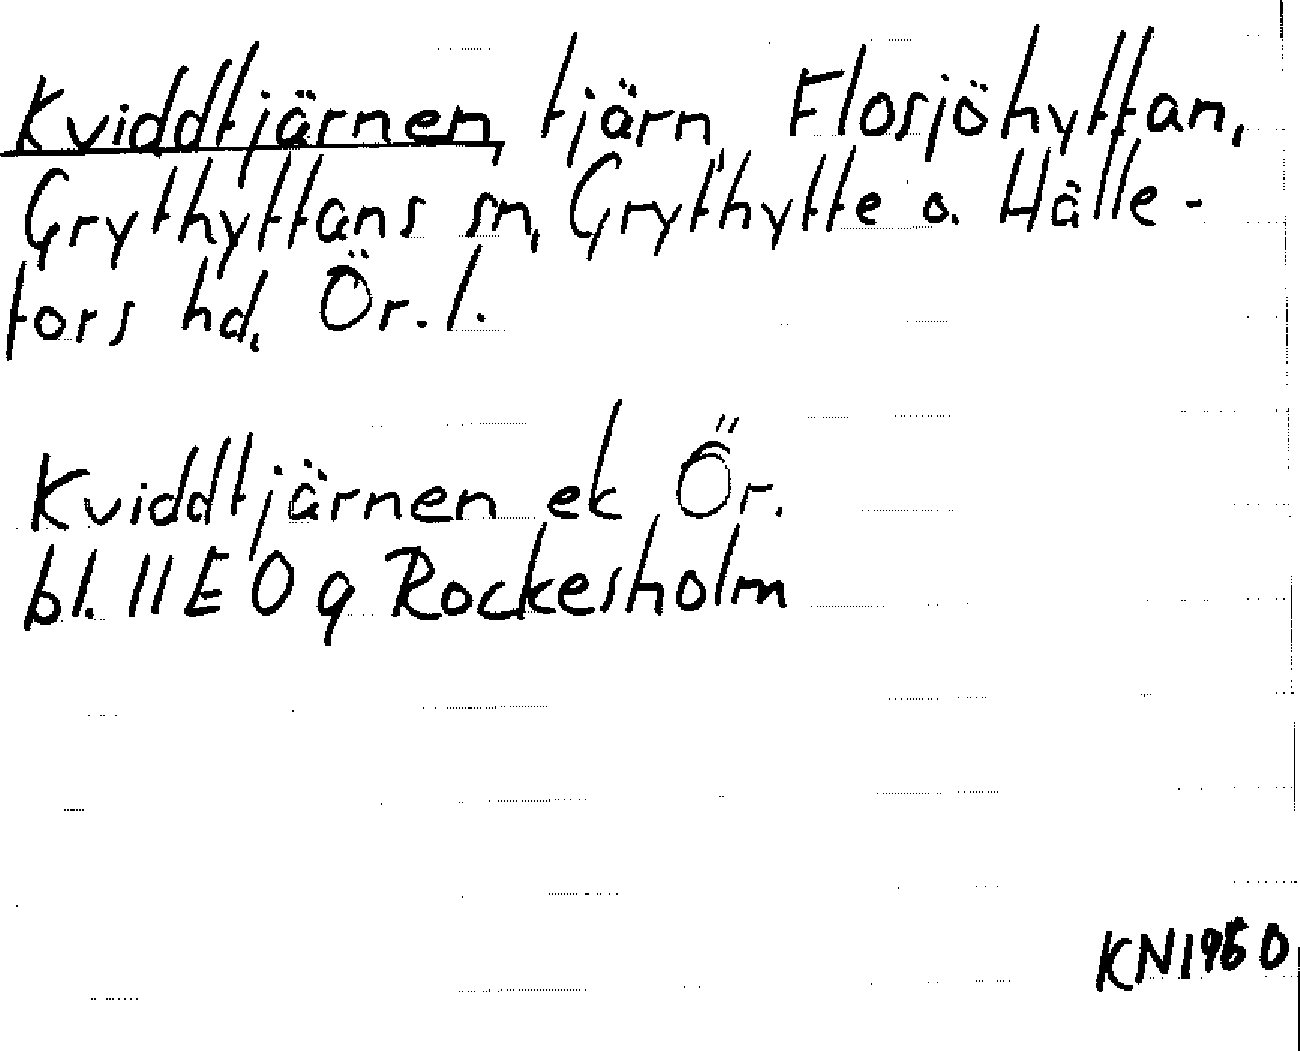 Kviddtjärnen, tjärn, Flosjöhyttan,
Grythyttans sn, Grythytte o. Hälle-
fors hd, Ör. l.
Kviddtjärnen ek Ör.
bl. 11E 0 g Rockesholm